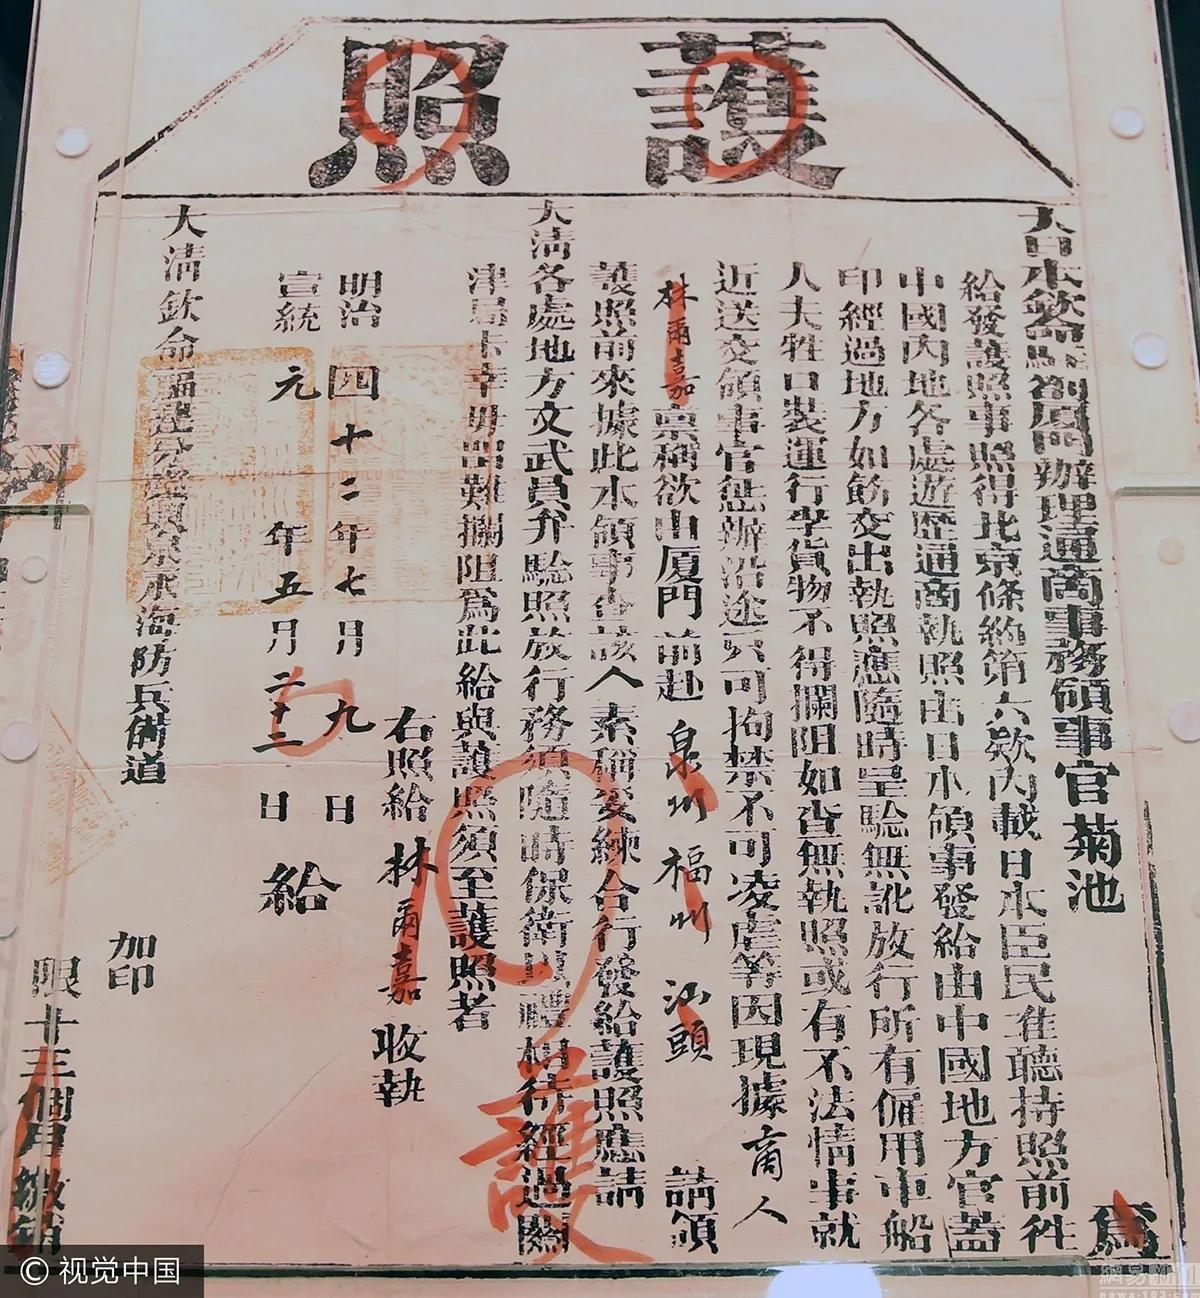 護照
大日本欽命駐劄厦門辦理通商事務領事官菊池
爲
給發護照事照得北京條約第六欵內載日本臣民准聽持照前往
中國內地各處遊歷通商執照由日本領事發給由中國地方官蓋
印經過地方如飭交出執照應隨時呈驗無訛放行所有僱用車船
人夫牲口裝運行李貨物不得攔阻如查無執照或有不法情事就
近送交領事官懲辦沿途只可拘禁不可凌虐等因現據商人
林爾嘉稟稱欲由厦門前赴泉州福州汕頭 請領
護照前來據此本領事查該人素稱妥練合行發給護照應請
大清各處地方文武員弁驗照放行務須隨時保衛以禮相待經過關
津局卡幸毋留難攔阻爲此給與護照須至護照者
右照給林爾嘉收執
明治四十二年七月九日
宣統元年五月二十二日給
大清欽命福建分巡興泉永海防兵備道
加印
限十三個月繳銷
護
© 视觉中国
網易新聞
news.163.com